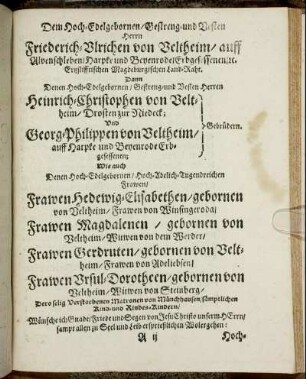 Dem Hoch-Edelgebornen/Gestreng-und Vesten
Herrn
Friederich-Ulrichen von Veltheim/ auff
Alvenschleben/Harpke und Beyenrode/Erbgesessenen/
Ertzstifftischen Magdeburgischen Land-Raht.
Dann
Denen Hoch-Edelgebornen/ Gestreng-und Vesten Herren
Heinrich-Christophen von Velt-
heim/ Drosten zur Niedeck;
Und
Georg-Philippen von Veltheim/
auff Harpke und Beyenrode Erb-
gesessenen;
Gebrüdern.
Wie auch
Denen Hoch-Edelgebornen/ Hoch-Adelich-Tugendreichen
Frawen/
Frawen Hedewig-Elisabethen/gebornen
von Veltheim/ Frawen von Winsingeroda/
Frawen Magdalenen / gebornen von
Veltheim/Witwen von dem Werder/
Frawen Gerdruten/gebornen von Velt-
heim/Frawen von Adeliebsen/
Frawen Ursul-Dorotheen/gebornen von
Veltheim/ Witwen von Steinberg/
Dero selig Verstorbenen Matronen von Münchhausen sämptlichen
Kind- und Kindes-Kindern/
Wünsche ich Gnade/ Friede und Segen von Jesu Christo unserm HErrn/
sampt allen zu Seel und Leib ersprießlichen Wolergehen:
A ij
Hoch-